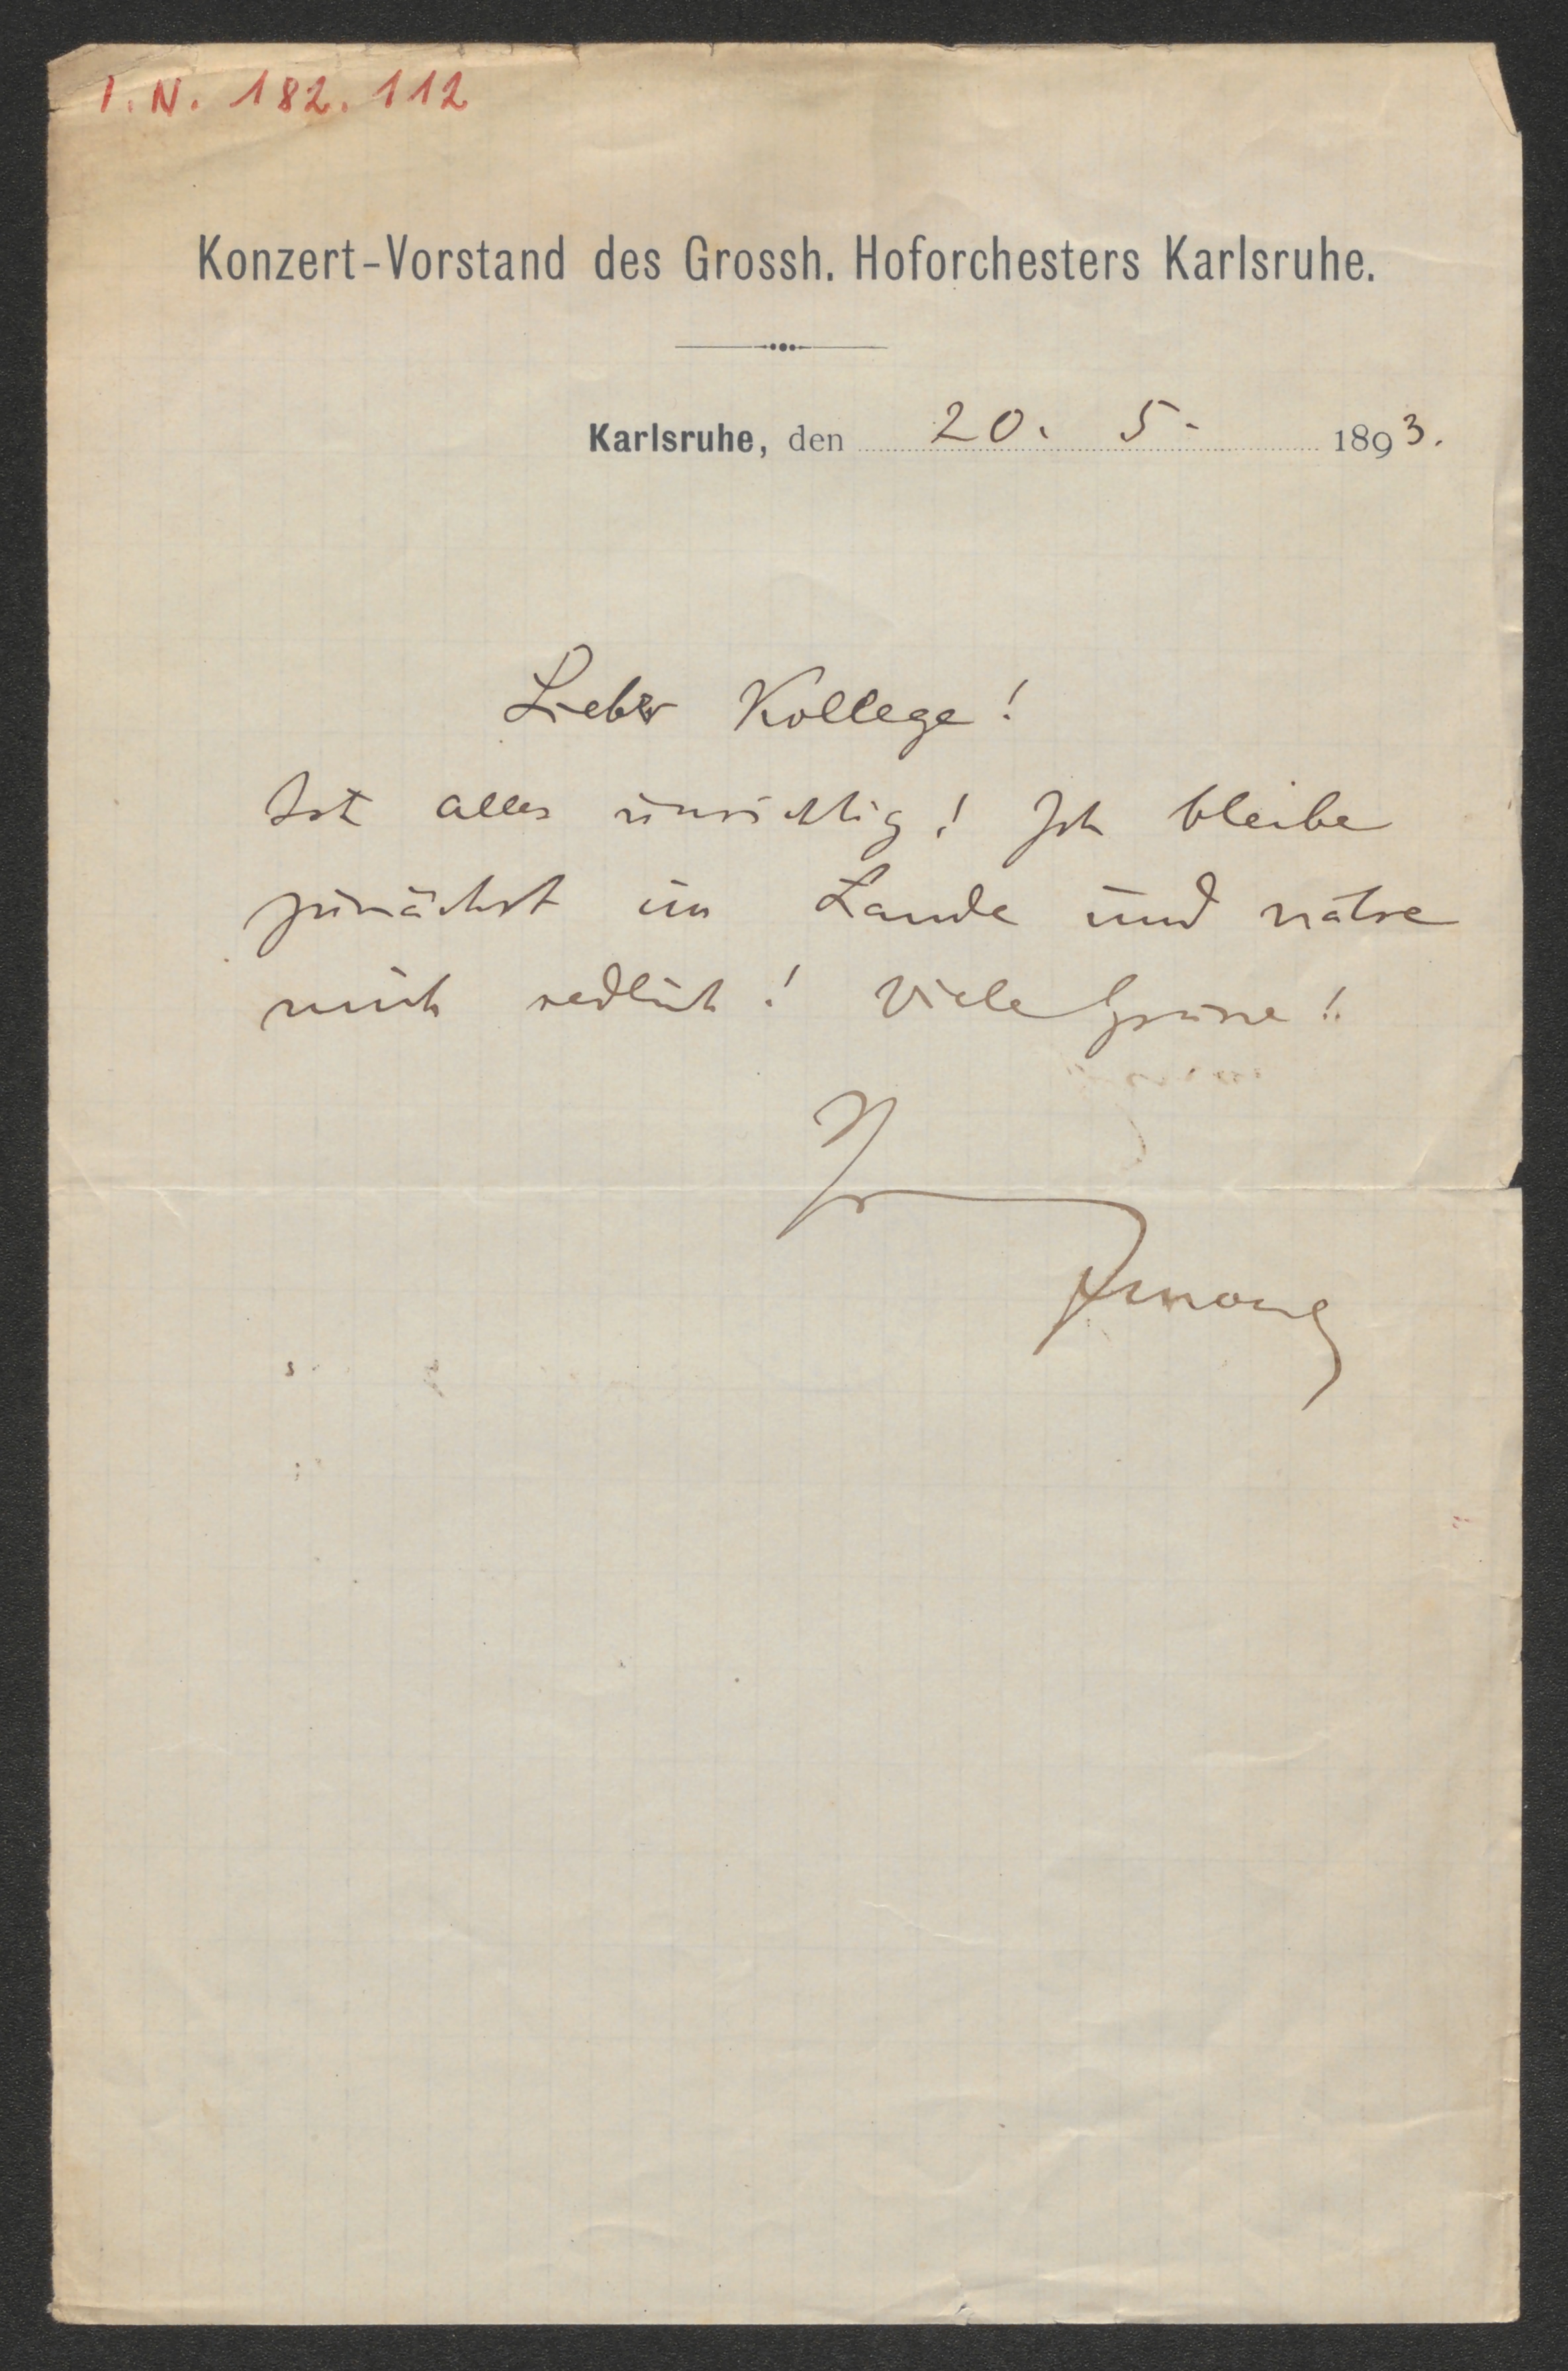 I.N. 182.112
Konzert-Vorstand des Grossh. Hoforchesters Karlsruhe.
Karlsruhe, den 20. 5. 1893.
Lieber Kollege!
Ist alles unrichtig! Ich bleibe
zunächst im Lande und nähre
mich redlich! Viele Grüsse!
Ihr